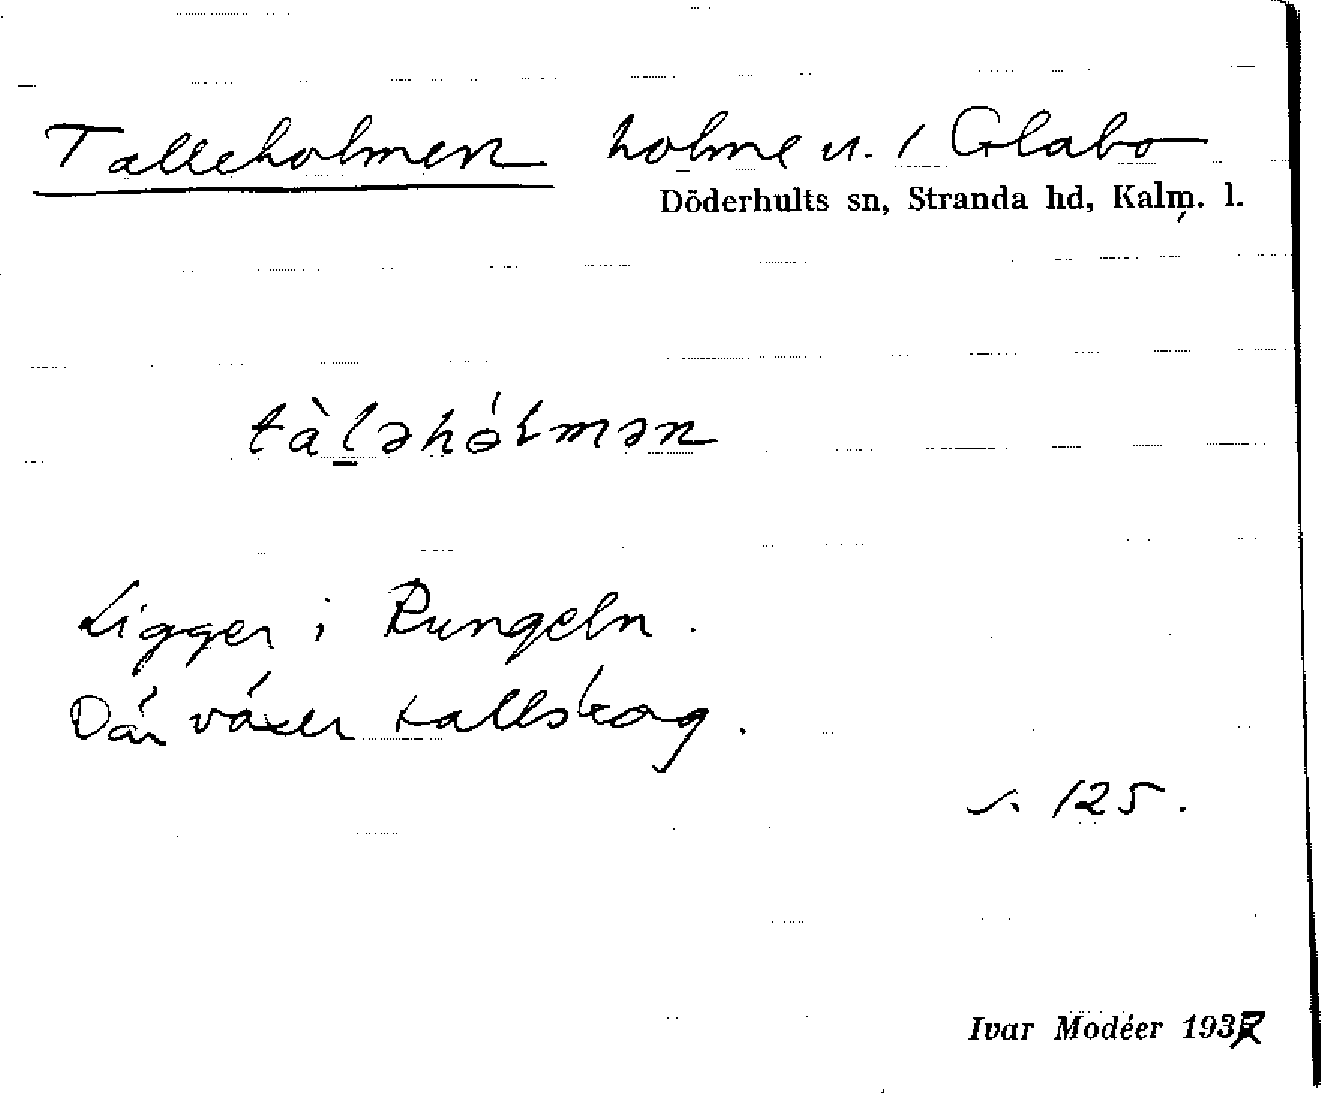 Talleholmen holme u. / Glabo
Döderhults sn, Stranda hd, Kalm. l.
tàl̠əhólmən
Ligger i Rungeln.
Där växer tallskog.
s. 125.
Ivar Modéer 193